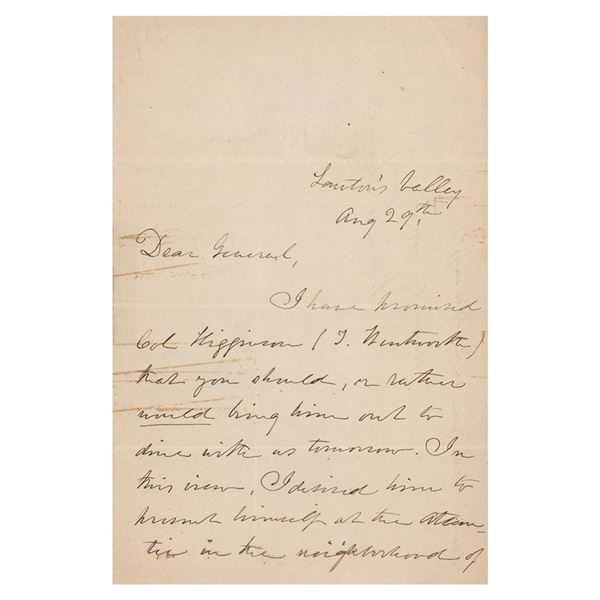 Lawton's Valley
Aug 29th.
Dear General,
I have promised
Col Higginson (T. Wentworth)
that you should, or rather
would bring him out to
dine with us tomorrow. In
this view, I desired him to
present himself at the Atlan-
tic in the neighborhood of